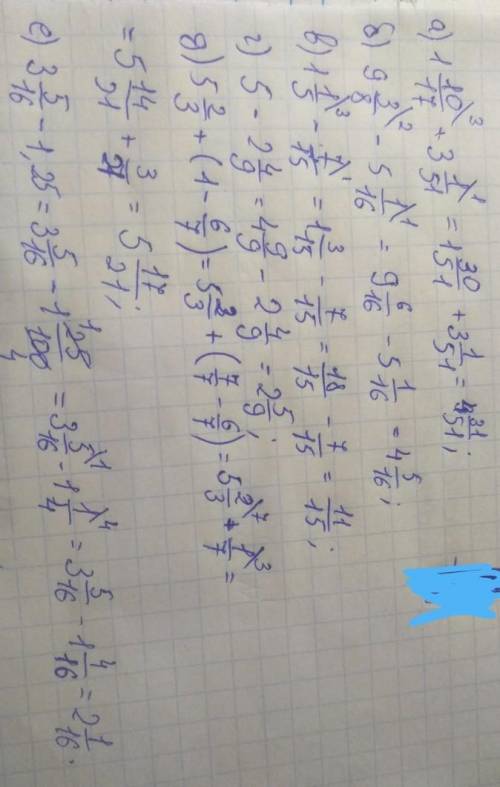 а) 1 10/17 \3 + 3 1/51 \1 = 1 30/51 + 3 1/51 = 4 31/51;
б) 9 3/8 \2 - 5 1/16 \1 = 9 6/16 - 5 1/16 = 4 5/16;
в) 1 1/5 \3 - 7/15 \1 = 1 3/15 - 7/15 = 18/15 - 7/15 = 11/15;
г) 5 - 2 4/9 = 4 9/9 - 2 4/9 = 2 5/9;
д) 5 2/3 + (1 - 6/7) = 5 2/3 + (7/7 - 6/7) = 5 2/3 \7 + 1/7 \3 =
= 5 14/21 + 3/21 = 5 17/21;
е) 3 5/16 - 1,25 = 3 5/16 - 1 25/100 = 3 5/16 \1 - 1 1/4 \4 = 3 5/16 - 1 4/16 = 2 1/16.